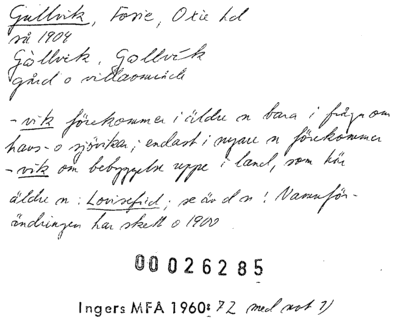 Gullvik, Fosie, Oxie hd
så 1904
Gållvik, Gollvik
gård o villaområde
-vik förekommer i äldre n bara i fråga om
havs- o sjövikar; endast i nyare n förekommer
-vik om bebyggelse uppe i land, som här
äldre n: Lovisefrid; se äv d n! Namnför-
ändringen har skett o 1900
00026285
Ingers MFA 1960: 72 med not 2)